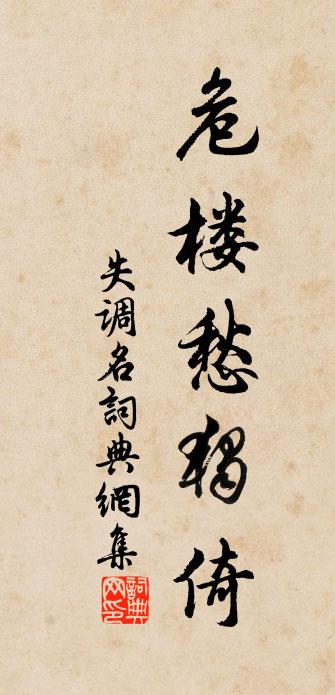 危楼愁独倚
失调名詞典網集
詞典網印